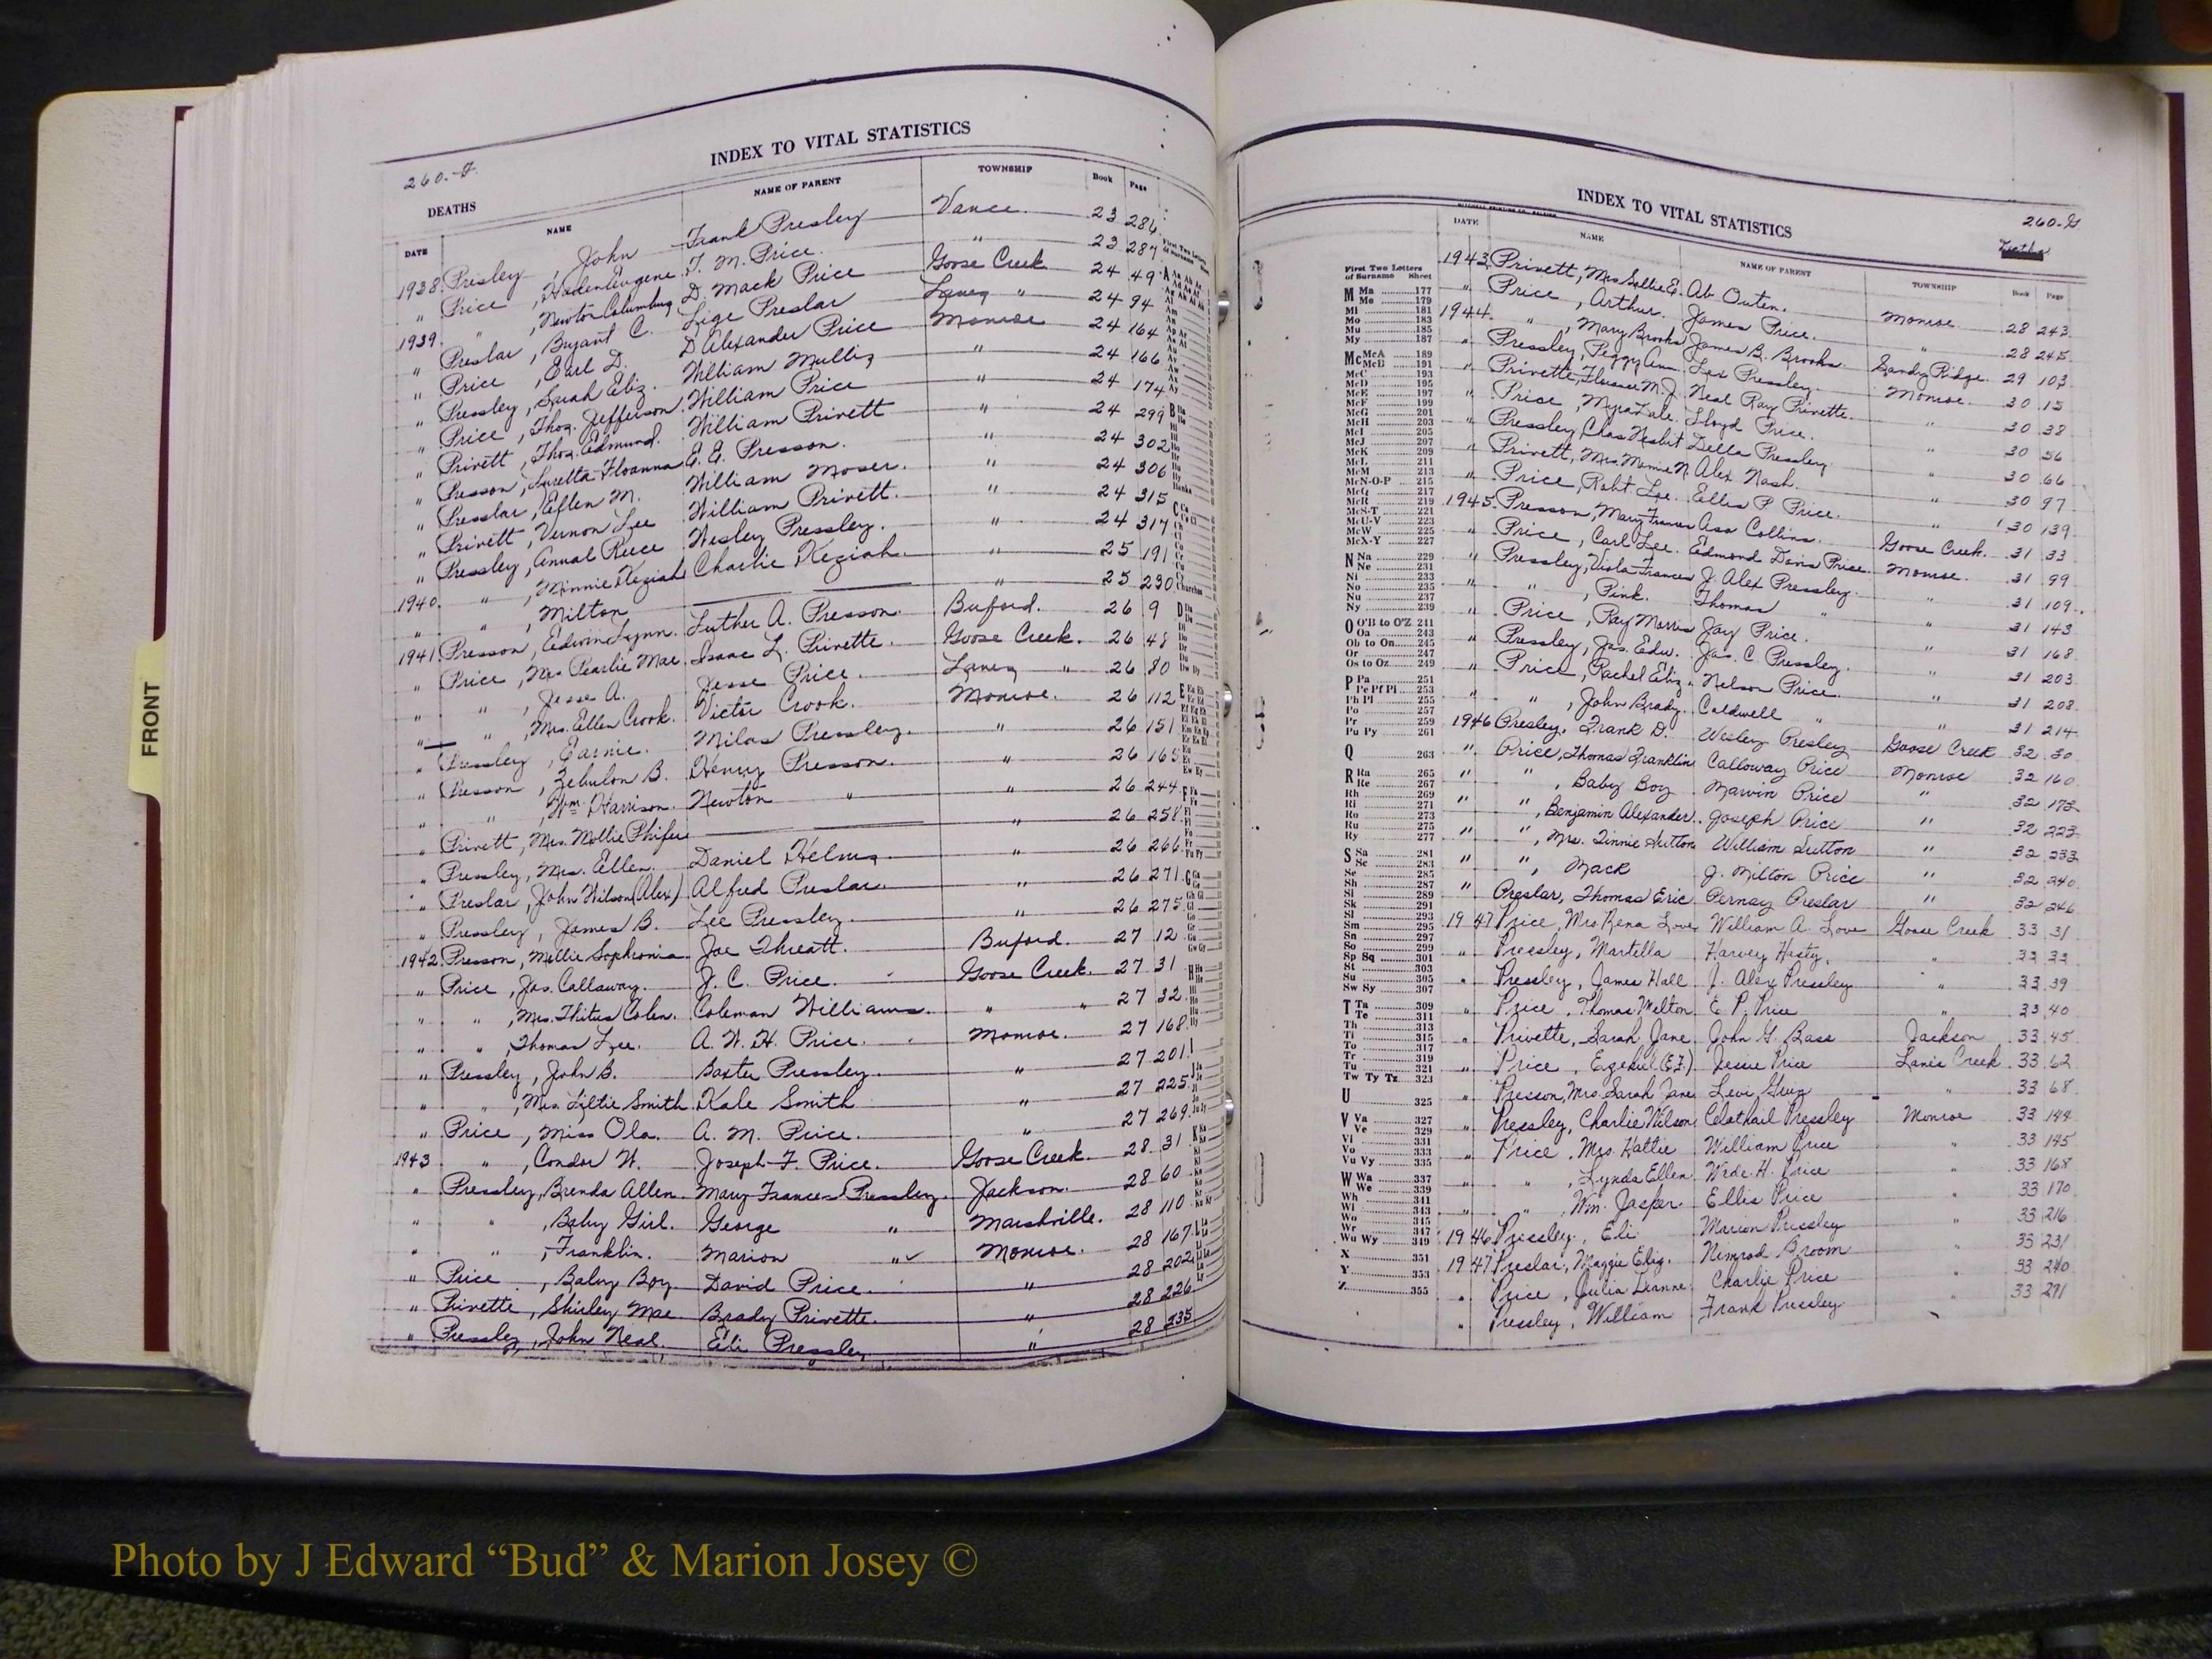 INDEX TO VITAL STATISTICS
DEATHS
DATE NAME NAME OF PARENT TOWNSHIP Book Page
1938 Presley, John Frank Presley Vance 23 286
" Price, Haden Eugene T. M. Price " 23 287
1939 " , Newton Columbus D. Mack Price Goose Creek 24 49
" Preslar, Bryant C. Lige Preslar Lanes " 24 94
" Price, Earl D. D Alexander Price Monroe 24 164
" Pressley, Sarah Eliz. William Mullis " 24 166
" Price, Thos. Jefferson William Price " 24 174
" Privett, Thos. Edmund. William Privett " 24 299
" Presson, Luretta E. E. Presson. " 24 302
" Presslar, Effen M. William Moser. " 24 306
" Privett, Vernon Lee William Privett. " 24 315
" Pressley, Annual Reece Wesley Pressley. " 24 317
1940. " , Minnie Keziah Charlie Keziah. " 25 191
" " , Milton " 25 230
1941. Presson, Edwin Lynn. Luther A. Presson. Buford. 26 9
" Price, Mrs Pearlie Mae. Isaac L. Privette. Goose Creek. 26 48
" " , Jesse A. Jesse Price. Lanes " 26 80
" " , Mrs. Ellen Crook. Victor Crook. Monroe. 26 112
" Pressley, Earnie. Milas Pressley. " 26 151
" Presson, Zebulon B. Henry Presson. " 26 165
" " , Wm. Harrison. Newton " " 26 244
" Privett, Mrs. Mollie Phifer " 26 258
" Pressley, Mrs. Ellen. Daniel Helms. " 26 266
" Preslar, John Wilson (Alex) Alfred Preslar. " 26 271
" Pressley, James B. Lee Pressley. " 26 275
1942. Presson, Mollie Sophronia Joe Threatt. Buford. 27 12
" Price, Jas. Callaway. J. C. Price. Goose Creek. 27 31
" " , Mrs. Thitus Colen. Coleman Williams. " " 27 32
" " , Thomas Lee. A. W. H. Price. Monroe. 27 168
" Pressley, John B. Baxter Pressley. " 27 201
" " , Mrs. Lillie Smith Kale Smith " 27 225
" Price, Miss Ola. A. M. Price. " 27 269
1943 " , Condor W. Joseph F. Price. Goose Creek. 28 31
" Pressley, Brenda Allen. Mary Frances Pressley. Jackson. 28 60
" " , Baby Girl. George " Marshville. 28 110
" " , Franklin. Marion " Monroe. 28 167
" Price, Baby Boy. David Price. " 28 202
" Privette, Shirley Mae Brady Privette. " 28 226
" Pressley, John Neal. Eli Pressley " 28 235
INDEX TO VITAL STATISTICS
260-G
DATE NAME NAME OF PARENT TOWNSHIP Book Page
First Two Letters
of Surname Sheet
M Ma 177
Me 179
Mi 181
Mo 183
Mu 185
My 187
Mc McA 189
McB 191
McC 193
McD 195
McE 197
McF 199
McG 201
McH 203
McI 205
McJ 207
McK 209
McL 211
McM 213
McN-O-P 215
McQ 217
McR 219
McS-T 221
McU-V 223
McW 225
McX-Y 227
N Na 229
Ne 231
Ni 233
No 235
Nu 237
Ny 239
O O'B to O'Z 241
Oa 243
Ob to On 245
Or 247
Os to Oz 249
P Pa 251
Pe Pf Pi 253
Ph Pl 255
Po 257
Pr 259
Pu Py 261
Q 263
R Ra 265
Re 267
Rh 269
Ri 271
Ro 273
Ru 275
Ry 277
S Sa 281
Sc 283
Se 285
Sh 287
Si 289
Sk 291
Sl 293
Sm 295
Sn 297
So 299
Sp Sq 301
St 303
Su 305
Sw Sy 307
T Ta 309
Te 311
Th 313
Ti 315
To 317
Tr 319
Tu 321
Tw Ty Tz 323
U 325
V Va 327
Ve 329
Vi 331
Vo 333
Vu Vy 335
W Wa 337
We 339
Wh 341
Wi 343
Wo 345
Wr 347
Wu Wy 349
X 351
Y 353
Z 355
1943 Privett, Mrs Sallie E. Ab Outen. Monroe 28 243
" Price, Arthur. James Price. " 28 245
1944. " , Mary Brooks James B. Brooks. Sandy Ridge. 29 103
" Pressley, Peggy Ann. Lee Pressley. Monroe. 30 15
" Privette, M. J. Neal Ray Privette. " 30 38
" Price, Myra Lale. Lloyd Price. " 30 56
" Pressley, Chas Nesbit Della Pressley " 30 66
" Privett, Mrs. Mamie N. Alex Nash. " 30 97
" Price, Robt. Lee. Ellis P. Price. " 30 139
1945. Presson, Mary Frances Asa Collins. Goose Creek. 31 33
" Price, Carl Lee. Edmond Davis Price. Monroe. 31 99
" Pressley, Viola Frances J. Alex Pressley. " 31 109
" " , Pink. Thomas " " 31 143
" Price, Ray Morris Jay Price. " 31 168
" Pressley, Jas. Edw. Jas. C. Pressley. " 31 203
" Price, Rachel Eliz. Nelson Price. " 31 208
" " , John Brady. Caldwell " " 31 214
1946 Presley, Frank D. Wesley Presley Goose Creek 32 30
" Price, Thomas Franklin Calloway Price Monroe 32 160
" " , Baby Boy Marvin Price " 32 173
" " , Benjamin Alexander. Joseph Price " 32 223
" " , Mrs. Linnie Sutton William Sutton " 32 233
" " , Mack J. Milton Price " 32 240
" Preslar, Thomas Eric Pernay Preslar " 32 246
1947 Price, Mrs Rena Love William A. Love Goose Creek 33 31
" Pressley, Martella Harvey Hasty. " 33 33
" Pressley, James Hall J. Alex Pressley " 33 39
" Price, Thomas Melton E. P. Price " 33 40
" Privette, Sarah Jane John G. Bass Jackson 33 45
" Price, Ezekiel (E.Z.) Jessie Price Lanes Creek 33 62
" Presson, Mrs. Sarah Jane Levi Green " 33 68
" Pressley, Charlie Wilson Pressley Monroe 33 144
" Price, Mrs. Hattie William Price " 33 145
" " , Lynda Ellen Wade H. Price " 33 168
" " , Wm. Jasper Ellis Price " 33 170
1946 Pressley, Eli Marion Pressley " 33 216
1947 Preslar, Maggie Eliz. Nimrod Broom " 33 231
" Price, Julia Dianne Charlie Price " 33 240
" Pressley, William Frank Pressley " 33 271
FRONT
Photo by J Edward “Bud” & Marion Josey ©